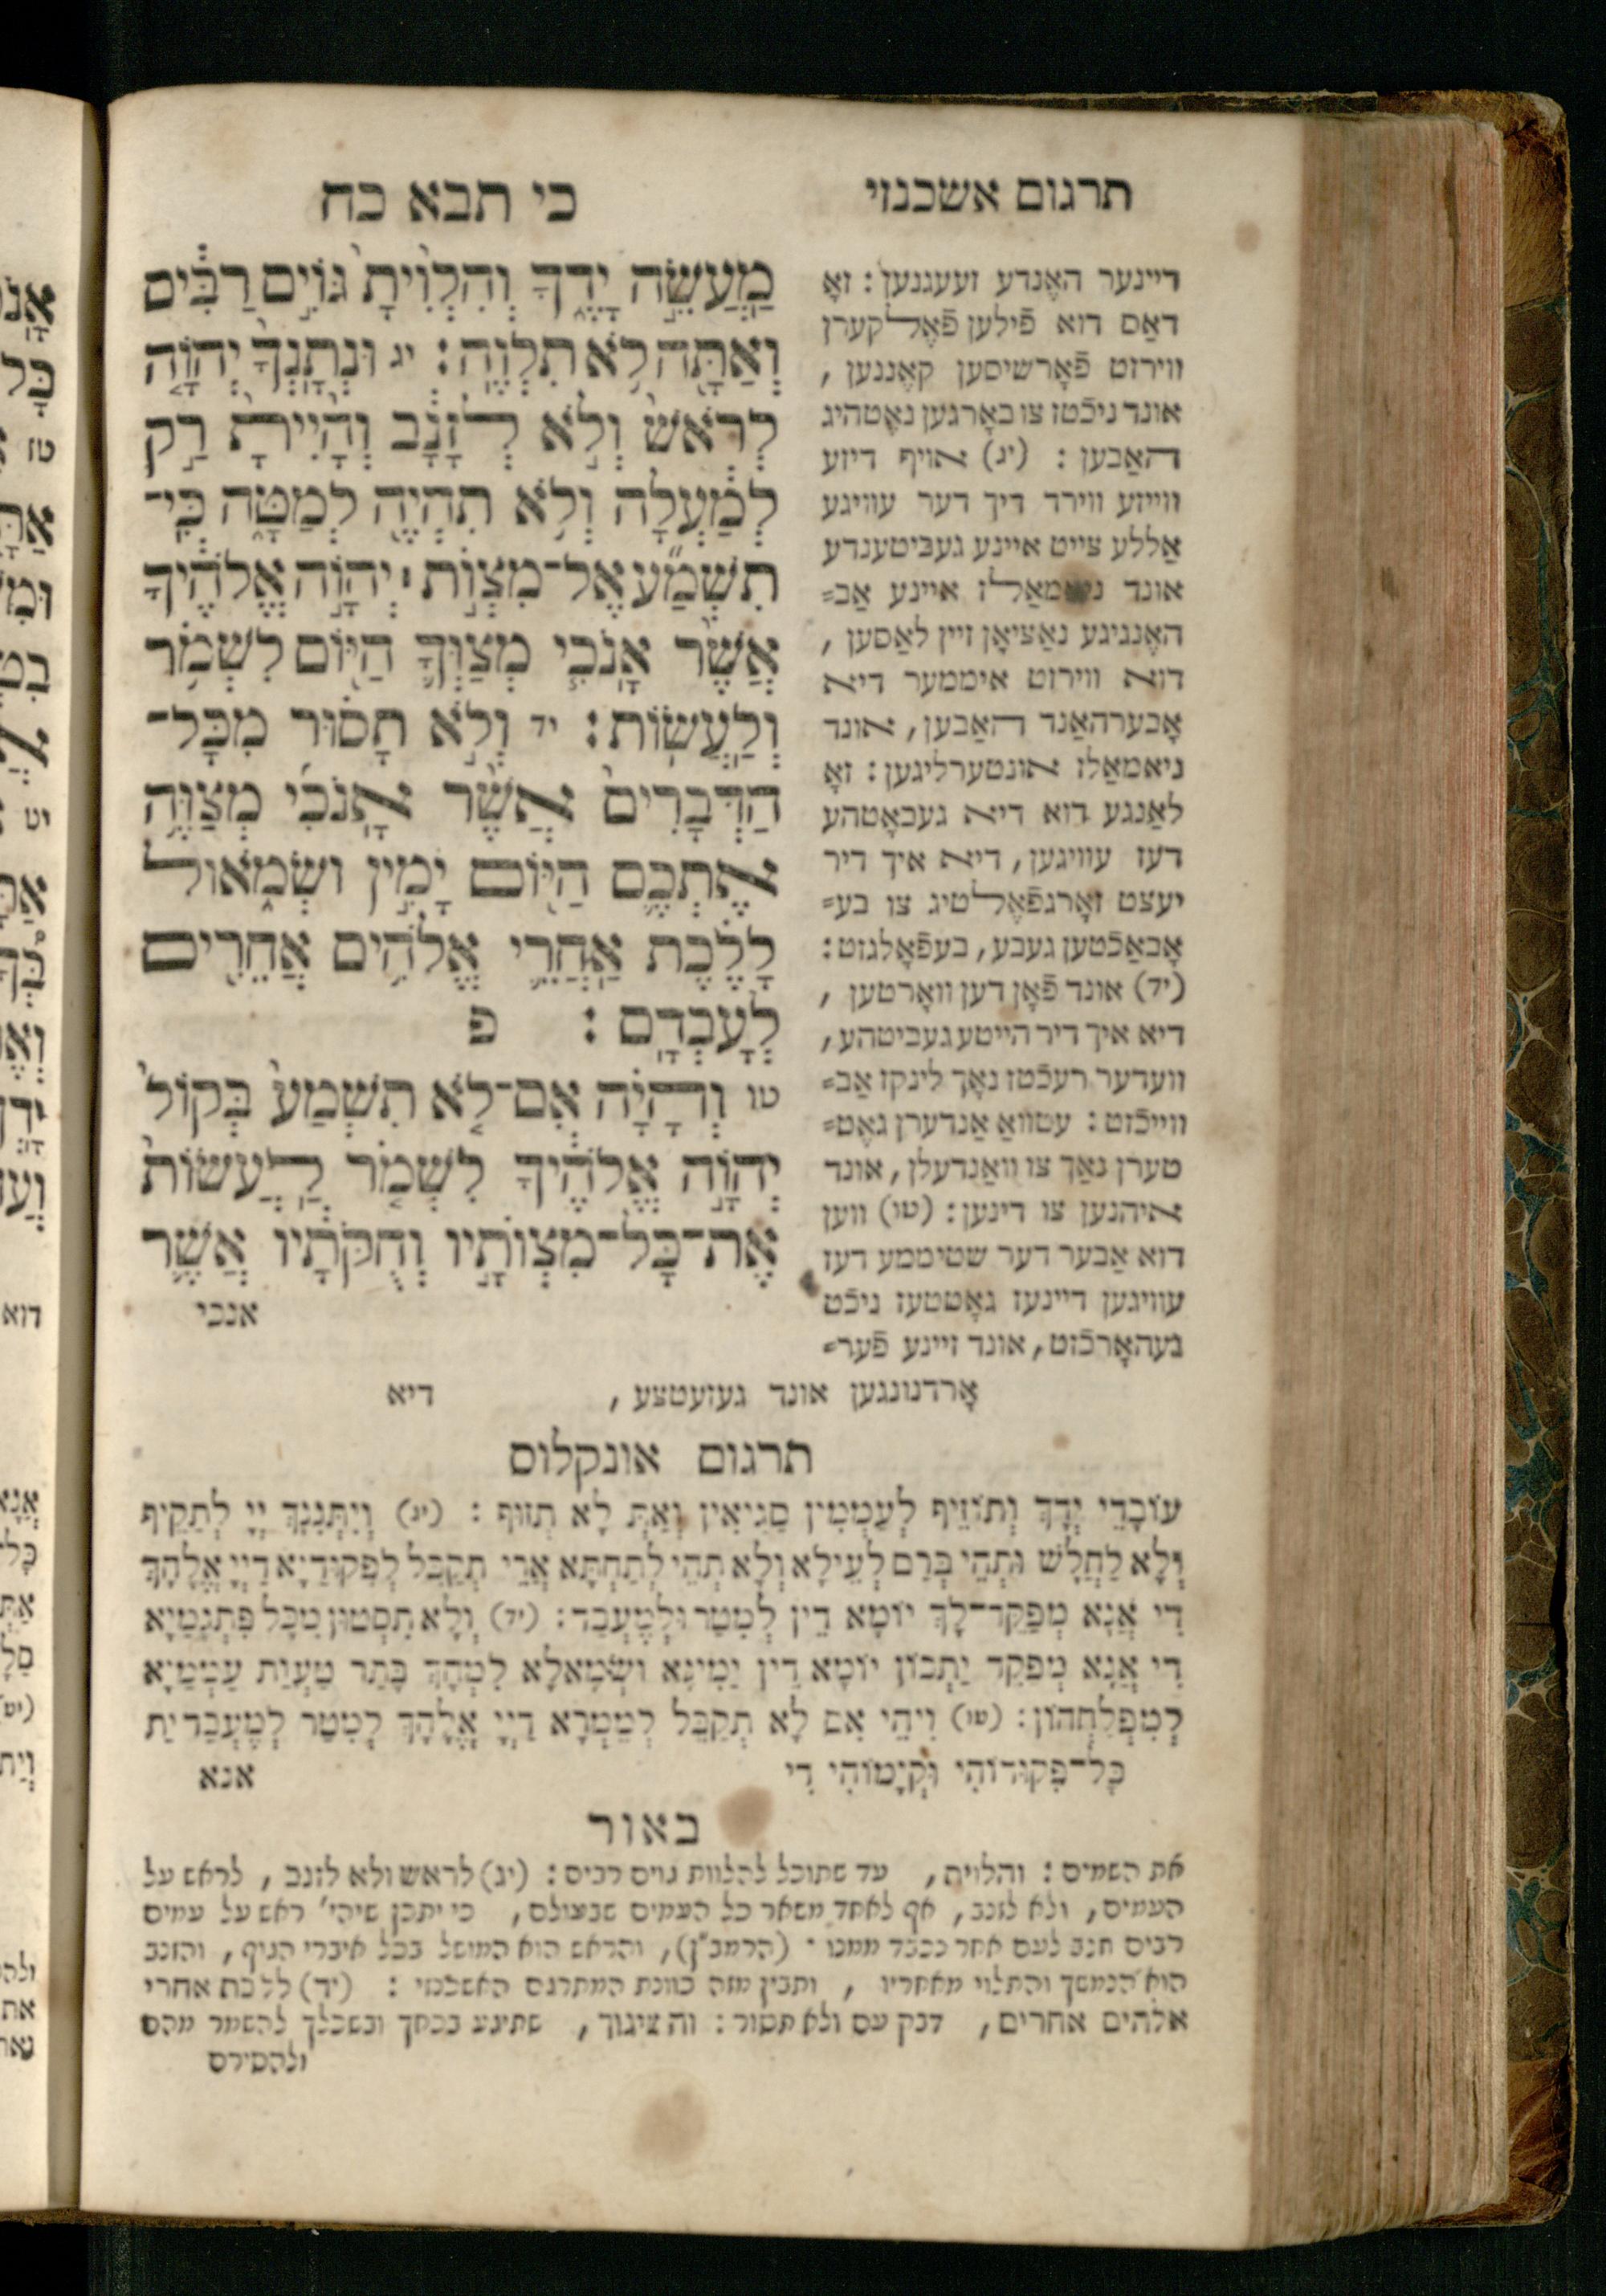 תרגום אשכנזי
כי תבא כח
מַעֲשֵׂה יָדֶךָ וְהִלְוִיתָ גּוֹיִם רַבִּים
וְאַתָּה לֹא תִלְוֶה: יג וּנְתָנְךָ יְהוָה
לְרֹאשׁ וְלֹא לְזָנָב וְהָיִיתָ רַק
לְמַעְלָה וְלֹא תִהְיֶה לְמַטָּה כִּי־
תִשְׁמַע אֶל־מִצְוֹת יְהוָה אֱלֹהֶיךָ
אֲשֶׁר אָנֹכִי מְצַוְּךָ הַיּוֹם לִשְׁמֹר
וְלַעֲשׂוֹת: יד וְלֹא תָסוּר מִכָּל־
הַדְּבָרִים אֲשֶׁר אָנֹכִי מְצַוֶּה
אֶתְכֶם הַיּוֹם יָמִין ושְׂמֹאול
לָלֶכֶת אַחֲרֵי אֱלֹהִים אֲחֵרִים
לְעָבְדָם: פ
טו וְהָיָה אִם־לֹא תִשְׁמַע בְּקוֹל
יְהוָה אֱלֹהֶיךָ לִשְׁמֹר לַעֲשׂוֹת
אֶת־כָּל־מִצְוֹתָיו וְחֻקֹּתָיו אֲשֶׁר
אנכי
דיינער האֶנדע זעעגנען: זאָ
דאַס דוא פֿילען פֿאֶלקערן
ווירזט פֿאָרשיסען קאֶננען,
אונד ניכֿטז צו באָרגען נאֶטהיג
האַבען: (יג) אויף דיזע
ווייזע ווירד דיך דער עוויגע
אַללע צייט איינע געביטענדע
אונד ניאמאַלז איינע אַב=
האֶנגיגע נאַציאָן זיין לאַסען,
דוא ווירזט איממער דיא
אָבערהאַנד האַבען, אונד
ניאמאַלז אונטערליגען: זאָ
לאַנגע דוא דיא געבאָטהע
דעז עוויגען, דיא איך דיר
יעצט זאָרגפֿאֶלטיג צו בע=
אָבאַכֿטען געבע, בעפֿאָלגזט:
(יד) אונד פֿאָן דען וואָרטען,
דיא איך דיר הייטע געביטהע,
וועדער רעכֿטז נאָך לינקז אַב=
ווייכֿזט: עטוואַ אַנדערן גאֶט=
טערן נאַך צו וואַנדעלן, אונד
איהנען צו דינען: (טו) ווען
דוא אַבער דער שטיממע דעז
עוויגען דיינעז גאָטטעז ניכֿט
געהאָרכֿזט, אונד זיינע פֿער=
אָרדנונגען אונד געזעטצע, דיא
תרגום אונקלוס
עוֹבָדֵי יְדָךְ וְתוֹזֵיף לְעַמְמִין סַגִּיאִין וְאַתְּ לָא תְזוּף: (יג) וְיִתְּנִנָּךְ יְיָ לְתַקִּיף
וְלָא לַחֲלָשׁ וּתְהֵי בְּרַם לְעֵילָא וְלָא תְהֵי לְתַחְתָּא אֲרֵי תְקַבֵּל לְפִקּוּדַיָּא דַיְיָ אֱלָהָךְ
דִּי אֲנָא מְפַקֵּד־לָךְ יוֹמָא דֵין לְמִטַּר וּלְמֶעְבַּד: (יד) וְלָא תִסְטוּן מִכָּל פִּתְגָמַיָּא
דִּי אֲנָא מְפַקֵּד יַתְכוֹן יוֹמָא דֵין יַמִּינָא וּשְׂמָאלָא לִמְהָךְ בָּתַר טַעֲוַת עַמְמַיָּא
לְמִפְלְחֲהוֹן: (טו) וִיהֵי אִם לָא תְקַבֵּל לְמֵימְרָא דַיְיָ אֱלָהָךְ לְמִטַּר לְמֶעְבַּד יַת
כָּל־פִּקּוּדוֹהִי וּקְיָמוֹהִי דִּי אנא
באור
את השמים: והלוית, עד שתוכל להלוות גוים רבים: (יג) לראש ולא לזנב, לראש על
העמים, ולא לזנב, אף לאחד משאר כל העמים שבעולם, כי יתכן שיהי' ראש על עמים
רבים וזנב לעם אחר נכבד ממנו · (הרמב"ן), והראש הוא המושל בכל איברי הגוף, והזנב
הוא הנמשך והתלוי מאחריו, ותבין מזה כוונת המתרגם האשכנזי: (יד) ללכת אחרי
אלהים אחרים, דבק עם ולא תסור: והציגוך, שתיגע בכחך ובשכלך להשמר מהם
ולהסירם